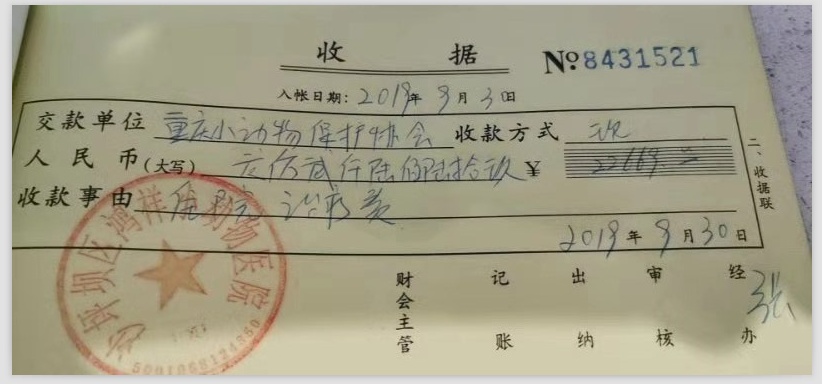 收 据 №8431521
入帐日期: 2019年 9月30日
交款单位 重庆小动物保护协会 收款方式 现
人民币(大写) 贰仟陆佰陆拾玖 ¥ 22669
收款事由 住院治疗费
2019年9月30日
二、收据联
财会主管 记账 出纳 审核 经办 张
坪坝区鸿祥 动物医院